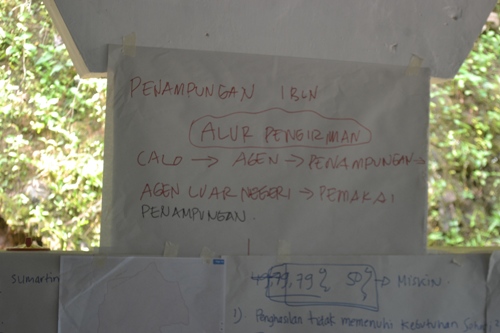 PENAMPUNGAN 1 BLN
ALUR PENGIRIMAN
CALO → AGEN → PENAMPUNGAN →
AGEN LUAR NEGERI → PEMAKAI
PENAMPUNGAN.
Sumartin
79% SD → MISKIN.
1) Penghasilan tidak memenuhi kebutuhan